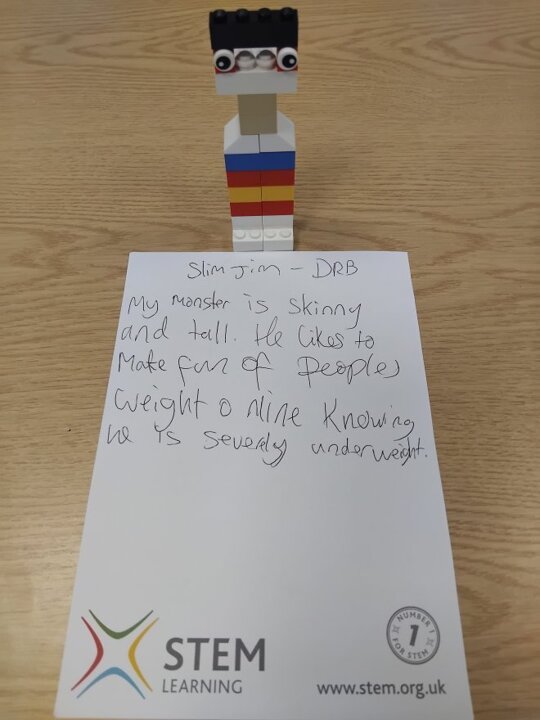 Slim Jim - DRB
My monster is skinny
and tall. He likes to
Make fun of Peoples
weight online Knowing
he is severly underweight.
STEM
LEARNING
NUMBER 1
1
FOR STEM
www.stem.org.uk